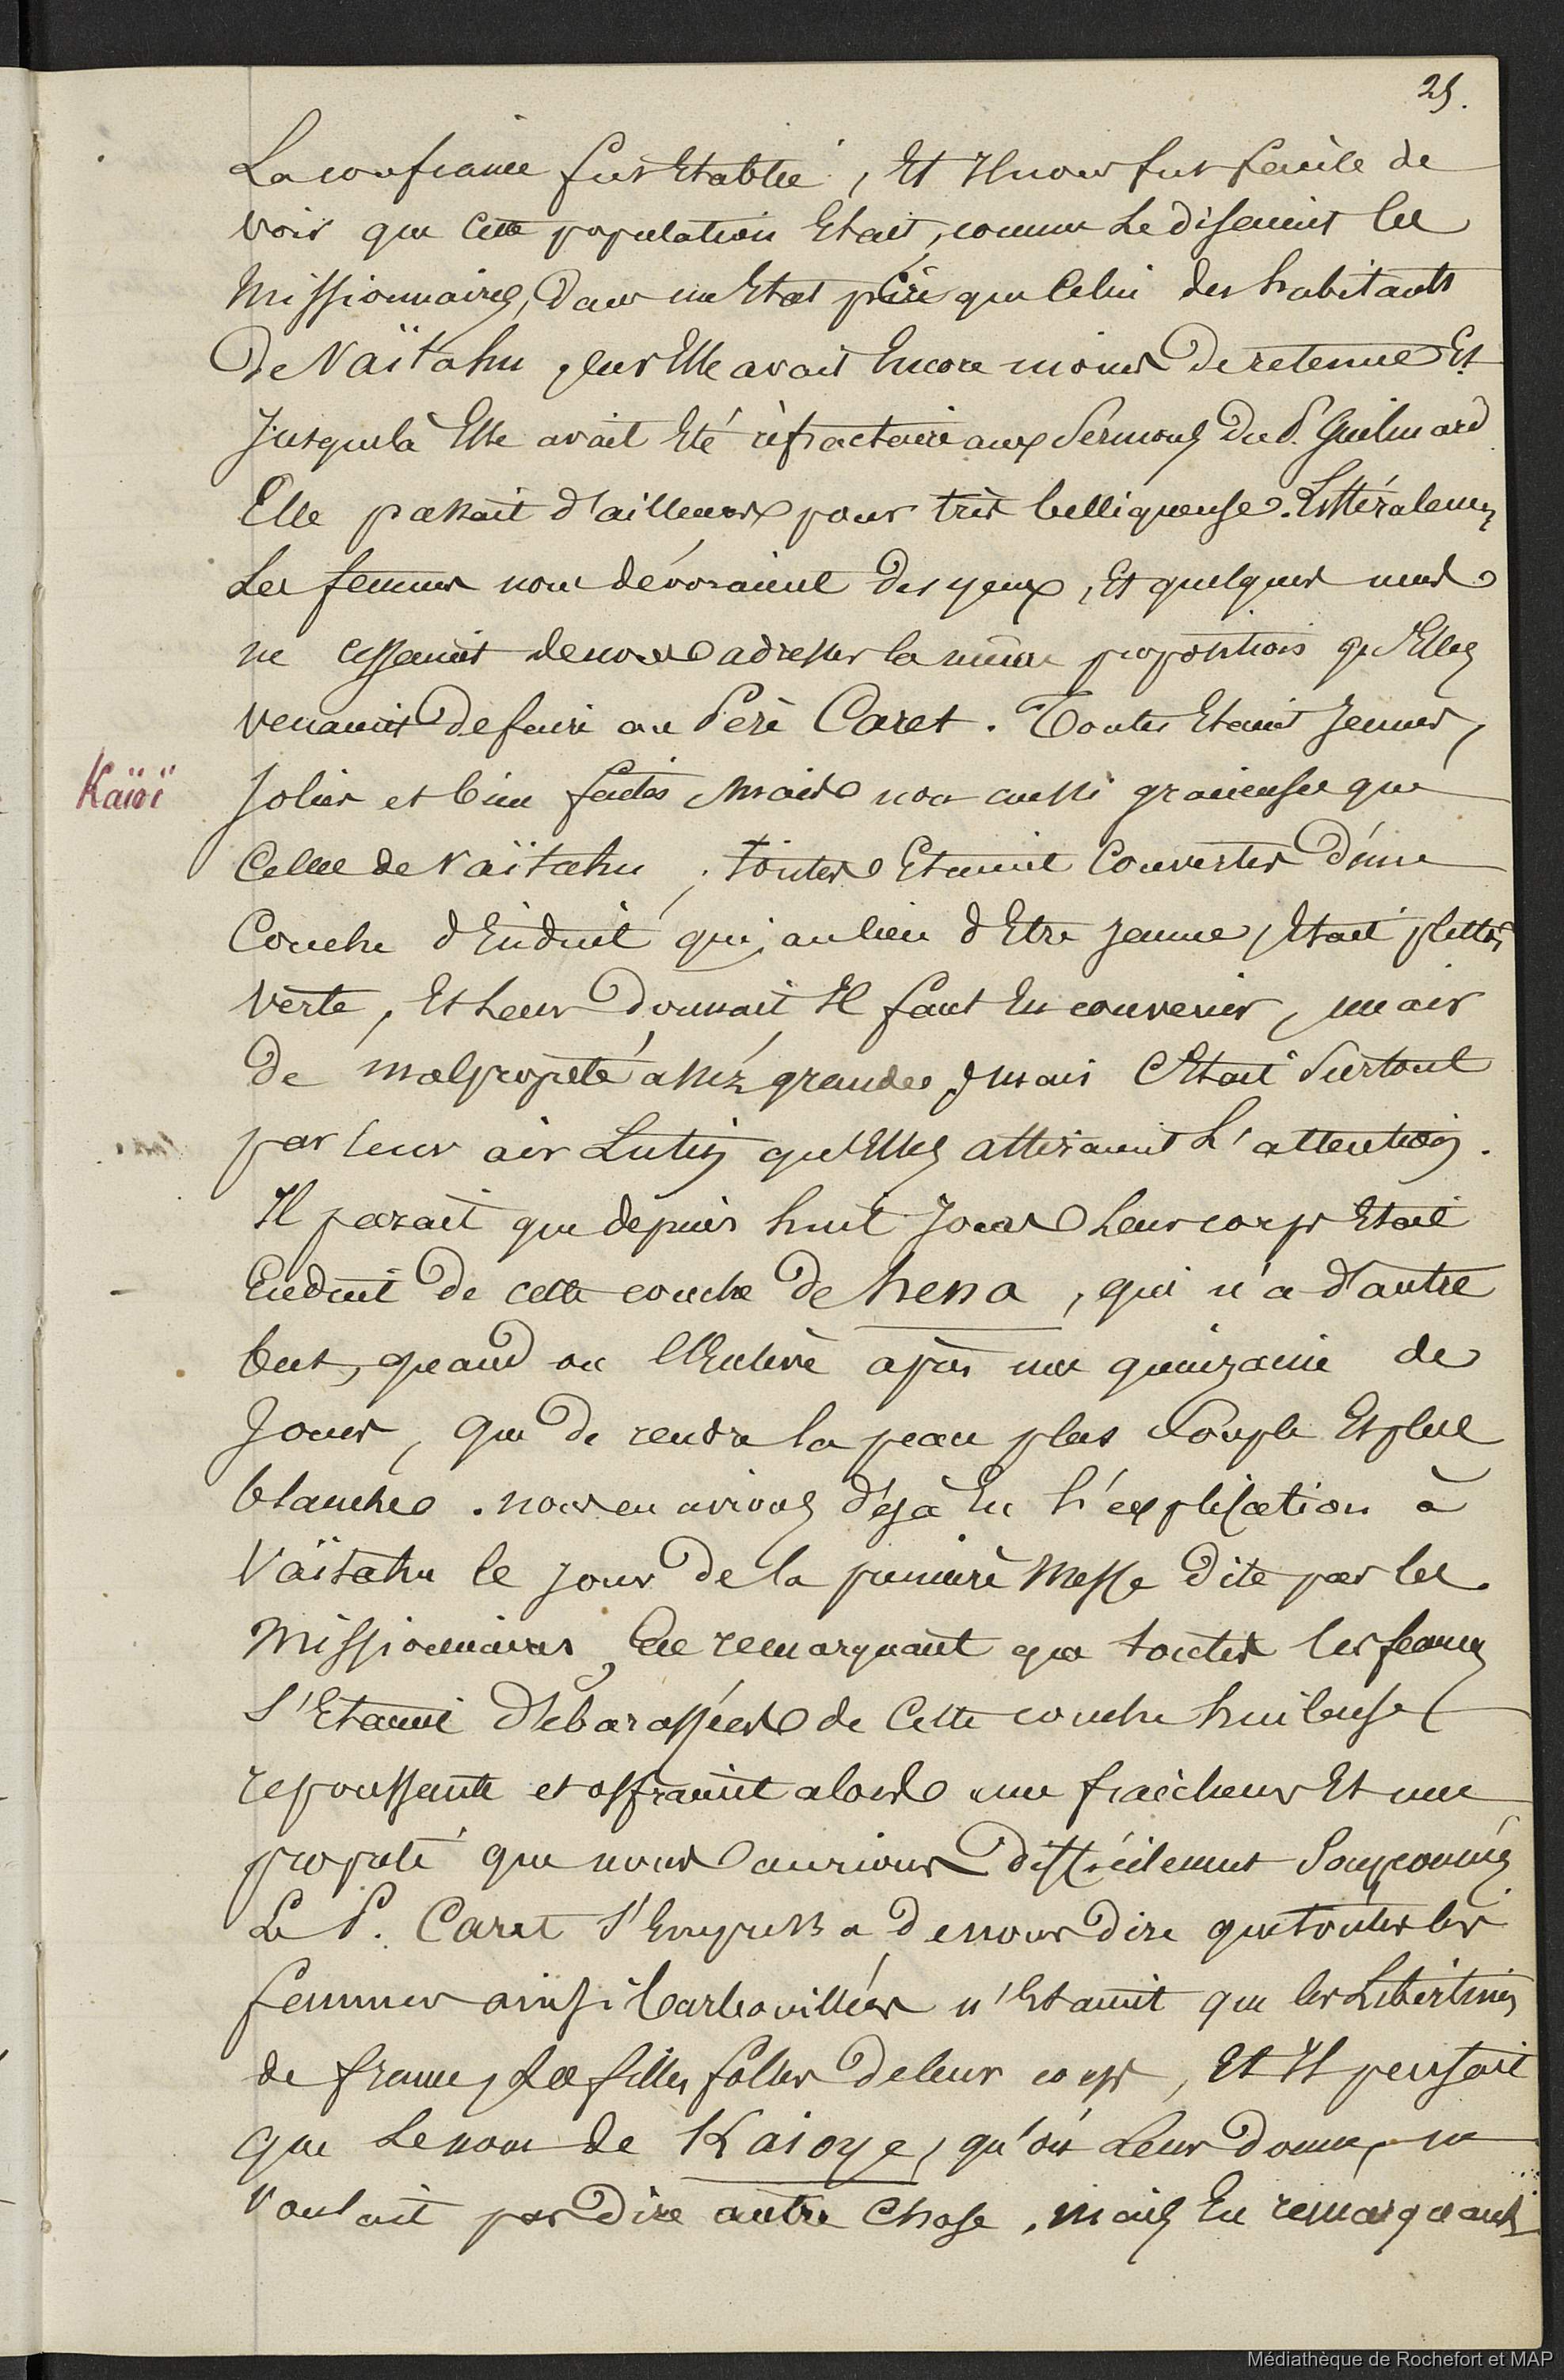 25.
La confiance fut Etablie, Et Il nous fut facile de
voir que cette population Etait, comme Le disaient les
Missionnaires, dans un Etat pire que Celui des habitants
de Vaïtahu, car Elle avait Encore moins de retenue Et
Jusque là Elle avait Eté réfractaire aux Sermons du P. Guilmard
Elle passait d'ailleurs pour très belliqueuse. Littéralement
Les femmes nous dévoraient des yeux, Et quelques unes
ne cessaient de nous adresser la même proposition qu'Elles
venaient de faire au Père Caret. Toutes Etaient Jeunes,
Kaïoï
Jolies et bien faites Mais non aussi gracieuses que
Celles de Vaïtahu ; toutes Etaient Couvertes d'une
Couche d'Enduit qui, au lieu d'Etre jaune, Etait plutôt
verte, Et Leur donnait Il faut En convenir, un air
de malpropreté assez grande, mais C'Etait Surtout
par leur air Lutin qu'Elles attiraient L'attention.
Il parait que depuis huit Jours Leur corps Etait
Enduit de cette couche de hena, qui n'a d'autre
but, quand on l'Enlève après une quinzaine de
Jours, que de rendre la peau plus Souple Et plus
blanche. nous en avions déjà Eu L'explication à
Vaïtahu le jour de la première Messe dite par les
Missionnaires, En remarquant que toutes les femmes
S'Etaient débarassées de Cette couche huileuse
repoussante et offraient alors une fraicheur Et une
propreté que nous aurions difficilement Soupçonnées
Le P. Caret S'Empressa de nous dire que toutes les
femmes ainsi barbouillées n'Etaient que les Libertines
de france, Les filles folles de leur corps, Et Il pensait
que Le nom de Kaioye, qu'on Leur donne, ne
voulait pas dire autre Chose, mais En remarquant
Médiathèque de Rochefort et MAP